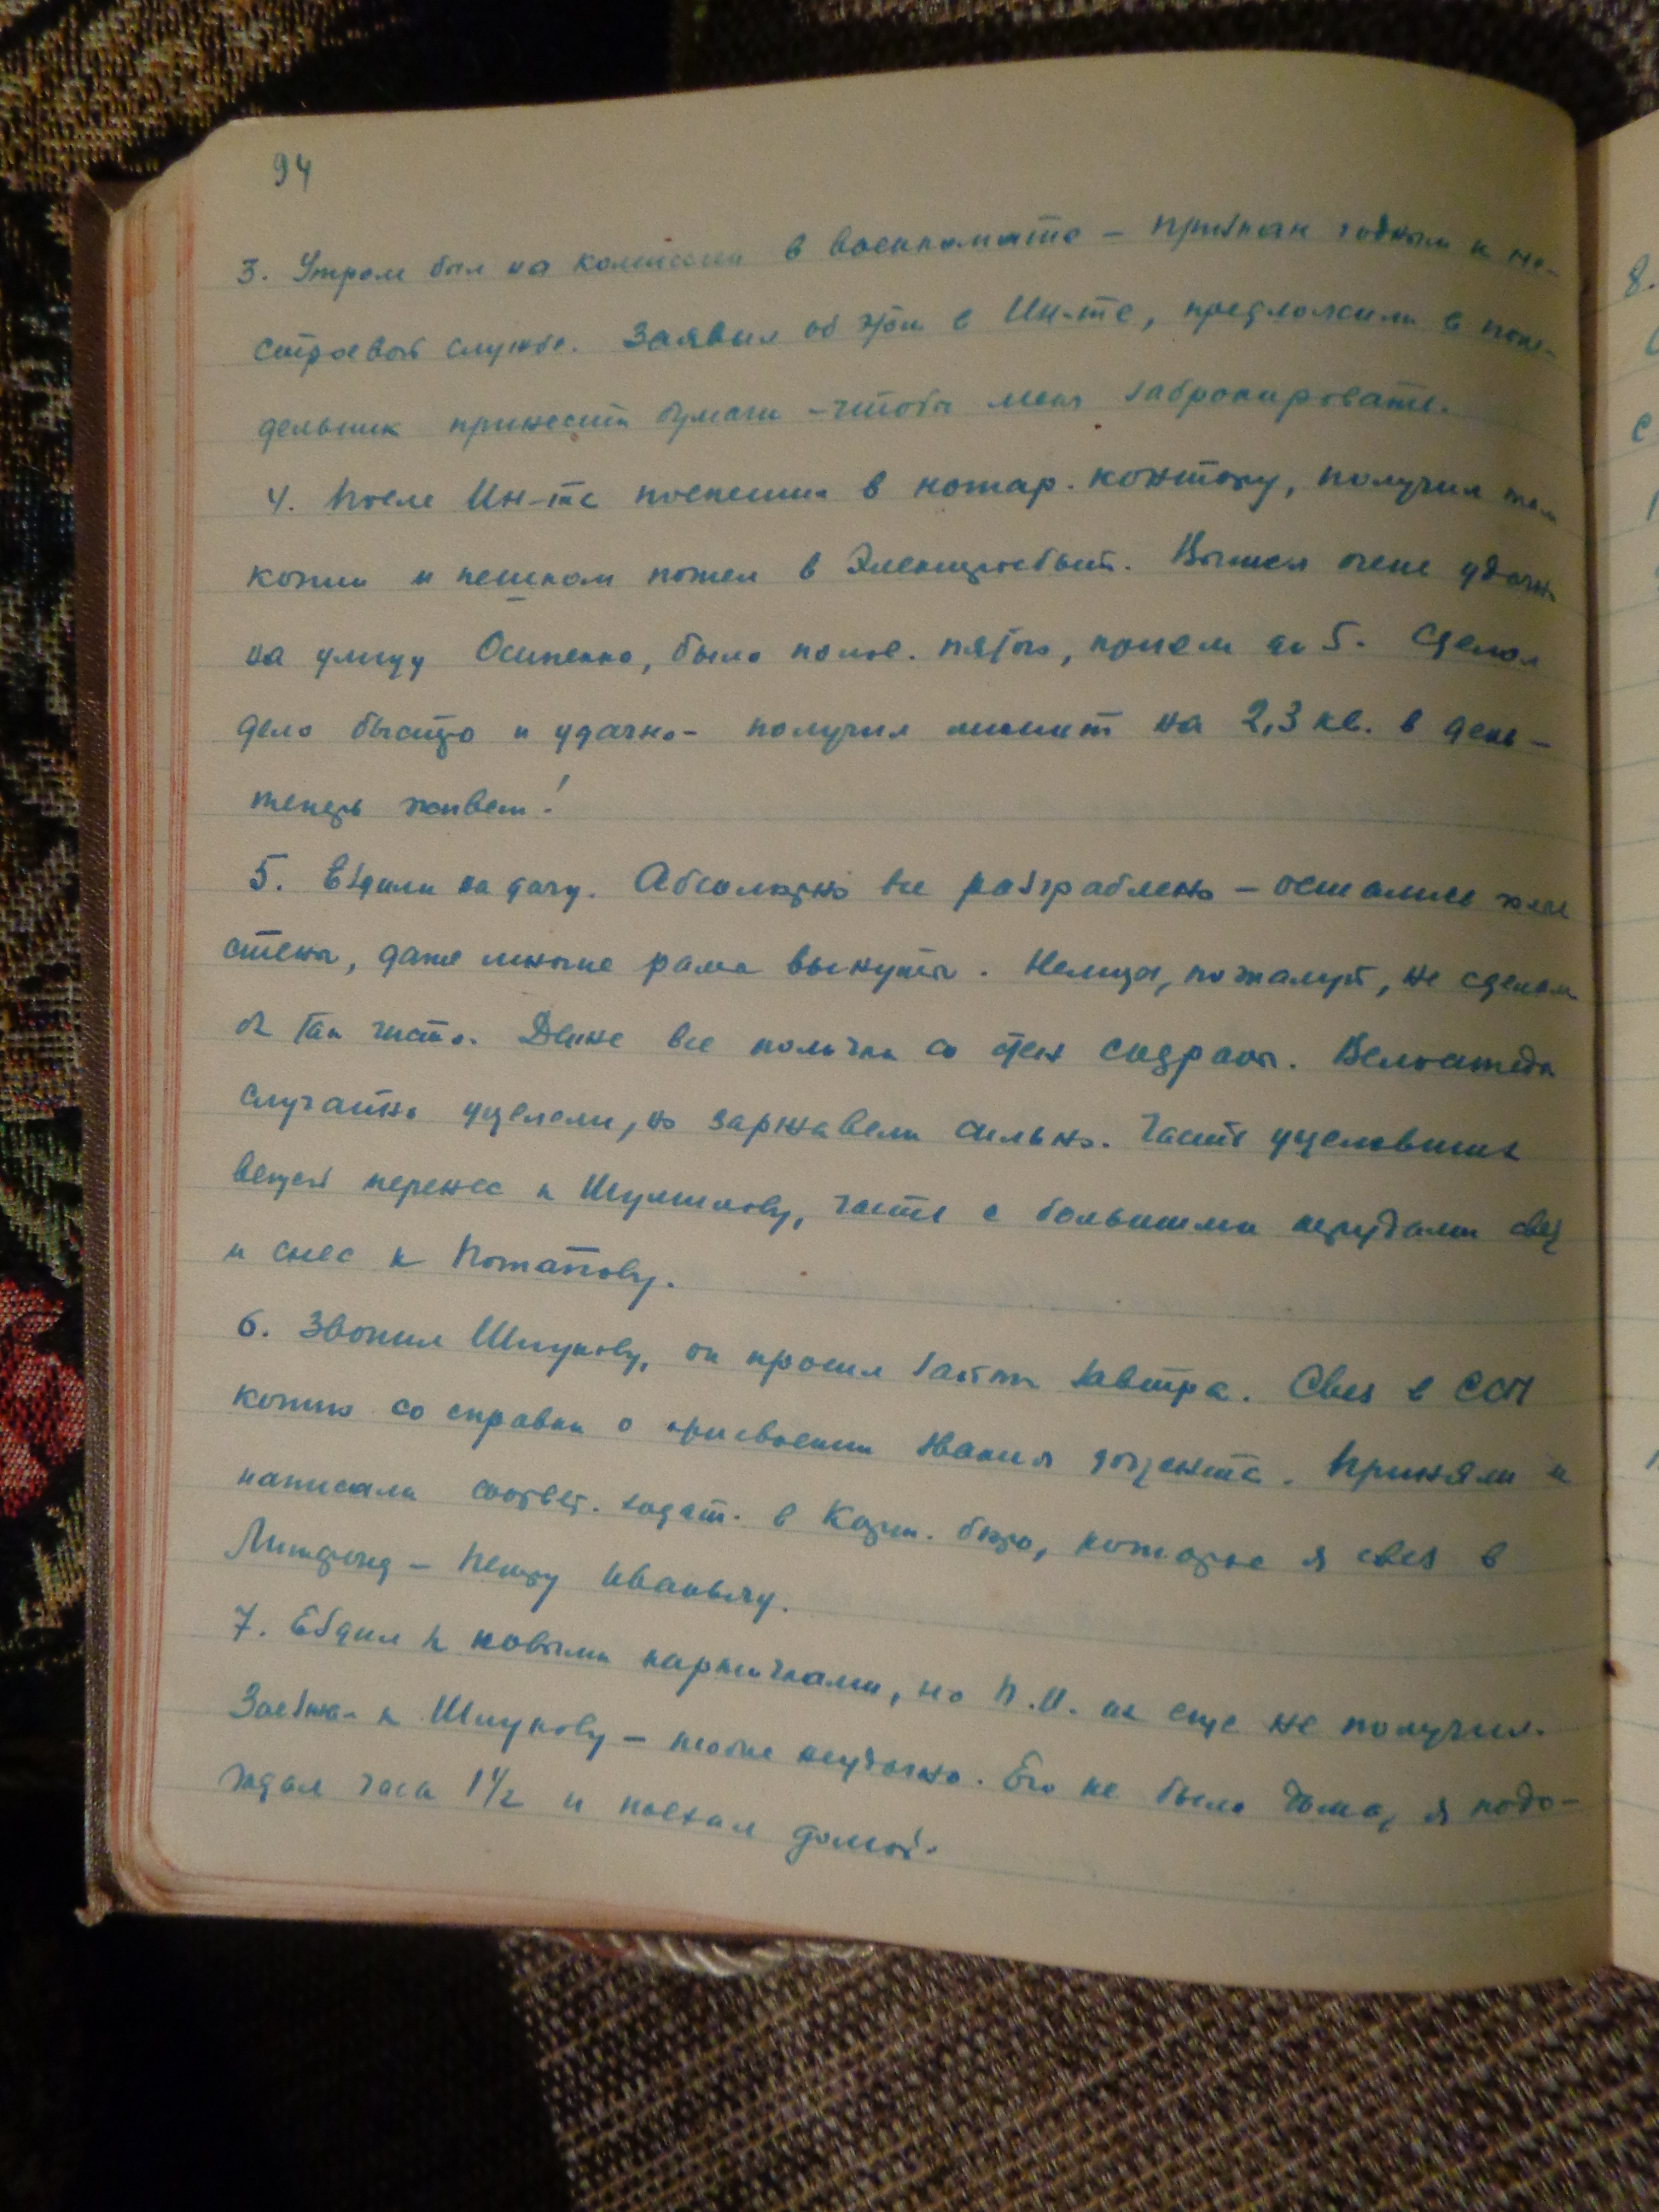 94
3. Утром был на комиссии в военкомате – признан годным к не-
строевой службе. Заявил об этом в Ин-те, предложили в поне-
дельник принести бумаги – чтобы меня забронировать.
4. После Ин-та поспешил в нотар. контору, получил там
копии и пешком пошел в Электросбыт. Вышел очень удачно
на улицу Осипенко, было полов. пятого, прием до 5. Сделал
дело быстро и удачно – получил лимит на 2,3 кв. в день –
теперь живем!
5. Ездили на дачу. Абсолютно все разграблено – остались
стены, даже многие рамы вынуты. Немцы, пожалуй, не сделали
б так чисто. Даже все полички со стен содраны. Велосипеды
случайно уцелели, но заржавели сильно. Часть уцелевших
вещей перенес к Шумилову, часть с большими трудами свез
и снес к Потапову.
6. Звонил Шмукову, он просил зайти завтра. Свез в ССП
копию со справки о присвоении звания доцента. Приняли и
написали соответ. ходат. в Карт. бюро, которое я свез в
Литфонд – Петру Иванычу.
7. Ездил за новыми карточками, но П.И. их еще не получил.
Заезжал к Шмукову – неудачно. Его не было дома, я подо-
ждал часа 1 1/2 и поехал домой.
8.